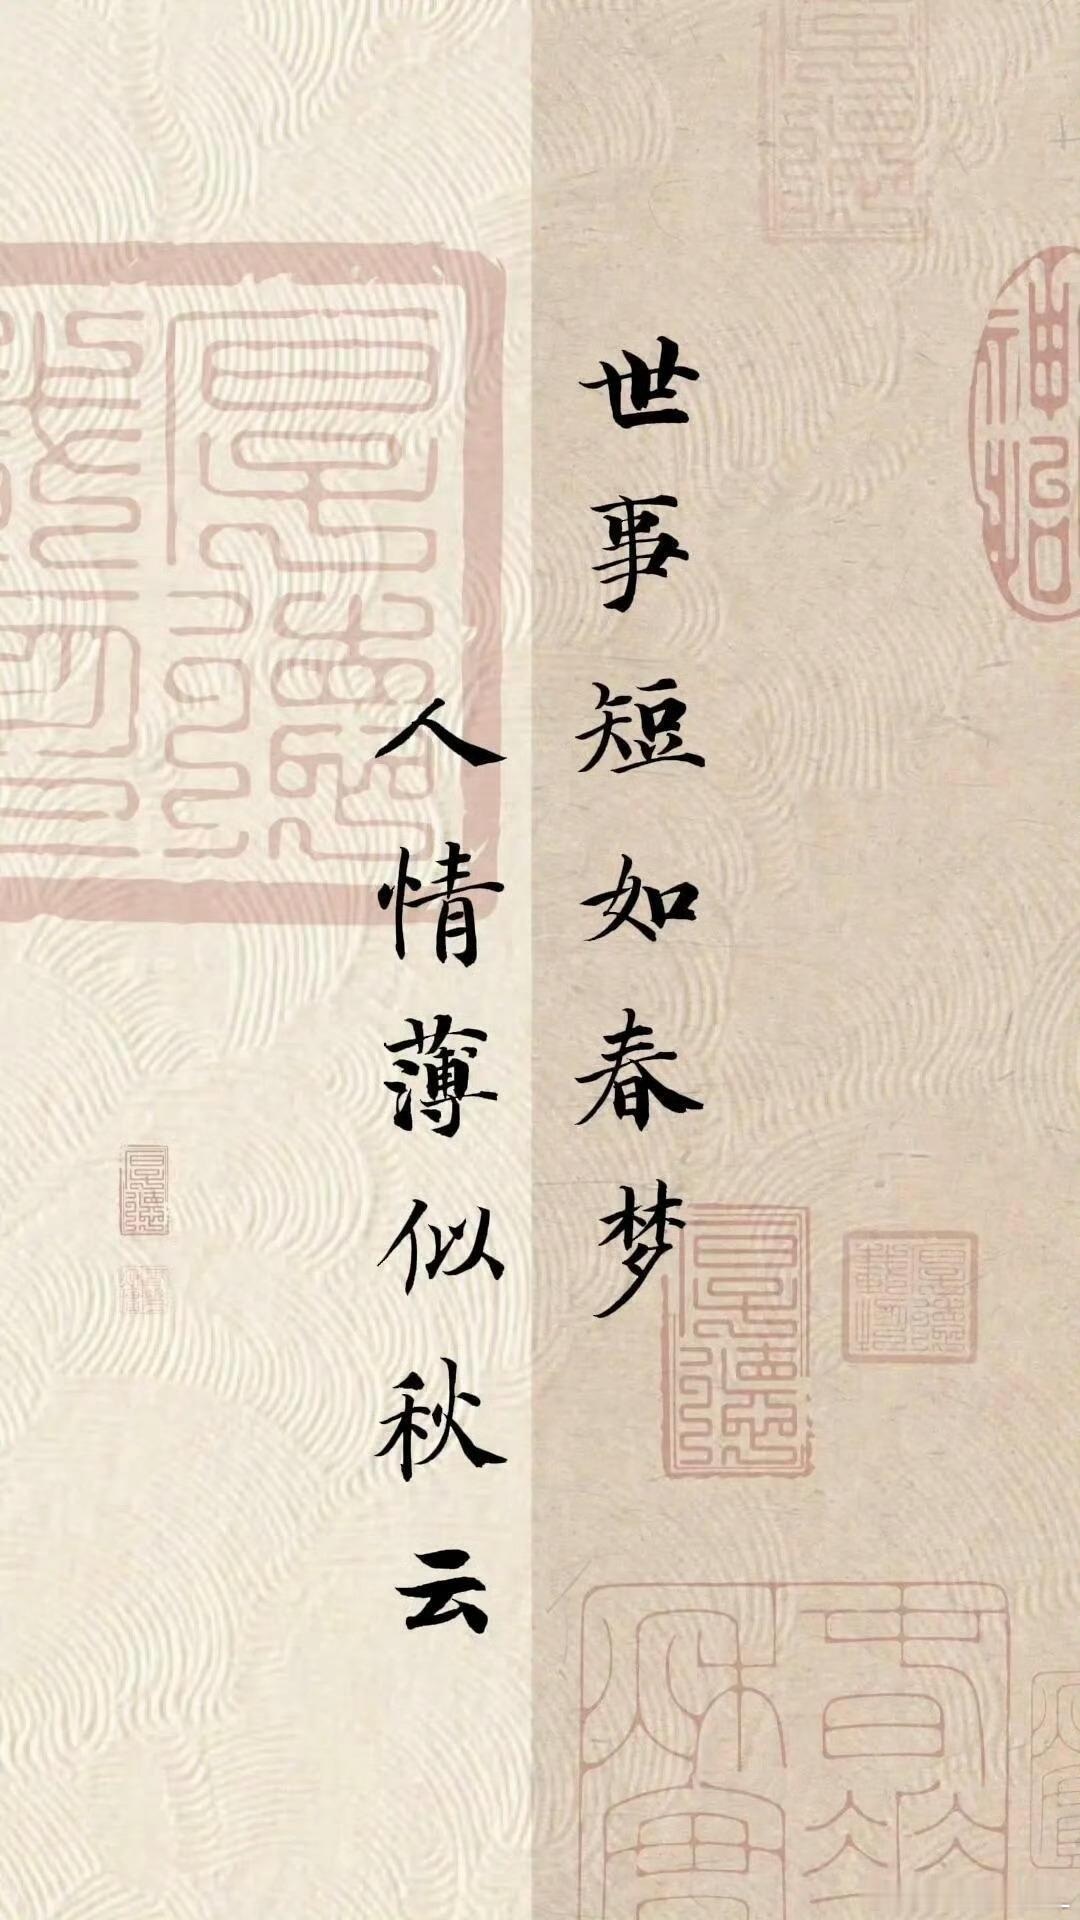 世事短如春梦
人情薄似秋云